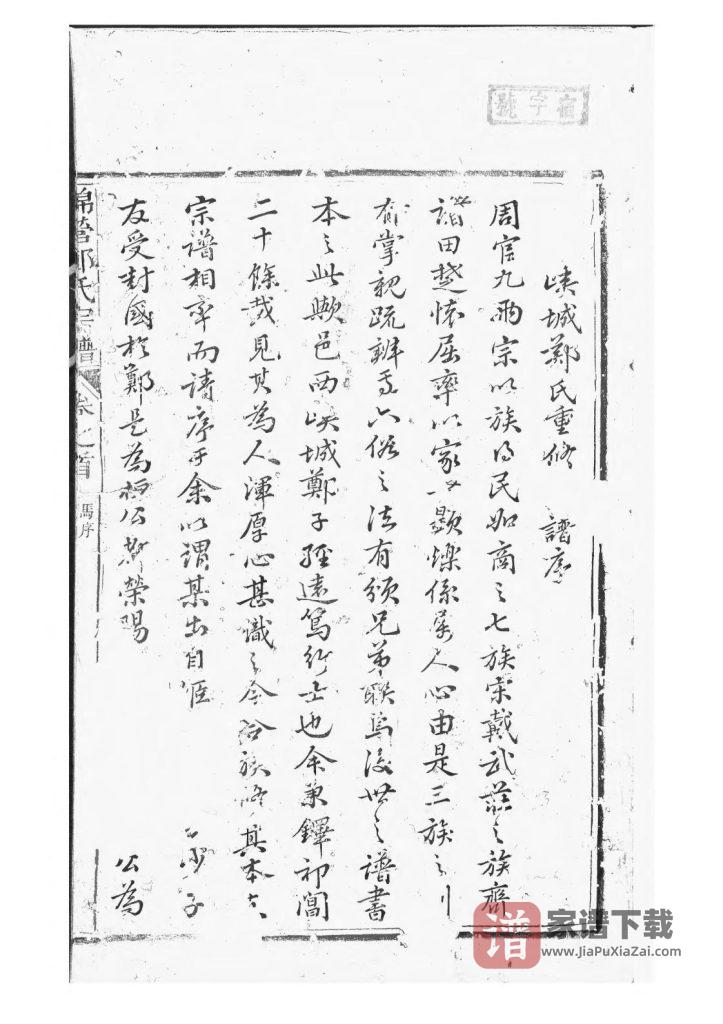 宿字號
峽城鄭氏重修 譜序
周官九兩宗以族得民如商之七族宋戴武莊之族齊
諸田楚懷屈率以家世顯爍係屬人心由是三族之
有掌親疏辨系六俗之法有頒兄弟聯焉後世之譜書
本之此歟邑西峽城鄭子經遠篤行士也余秉鐸祁閶
二十餘載見其為人渾厚心甚識之今合族修其本支
宗譜相率而請序于余以謂某出自 少子
友受封國於鄭是為桓公 滎陽 公為
錦營鄭氏宗譜 卷之首 馬序
譜 家谱下载
www.JiaPuXiaZai.com